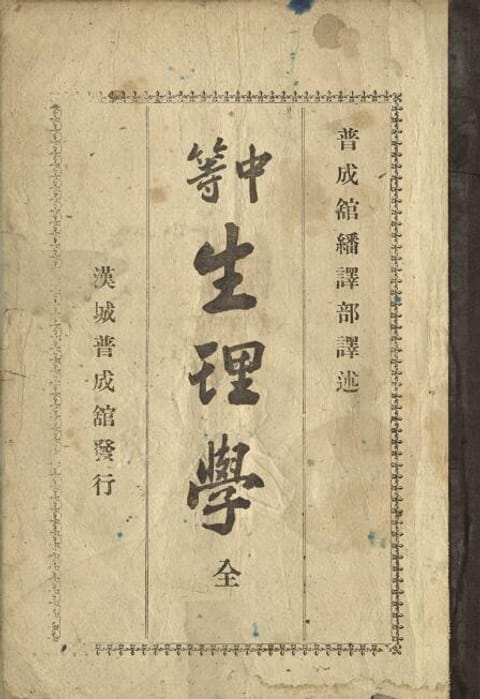 普成舘繙譯部譯述
中等
生理學全
漢城普成舘發行